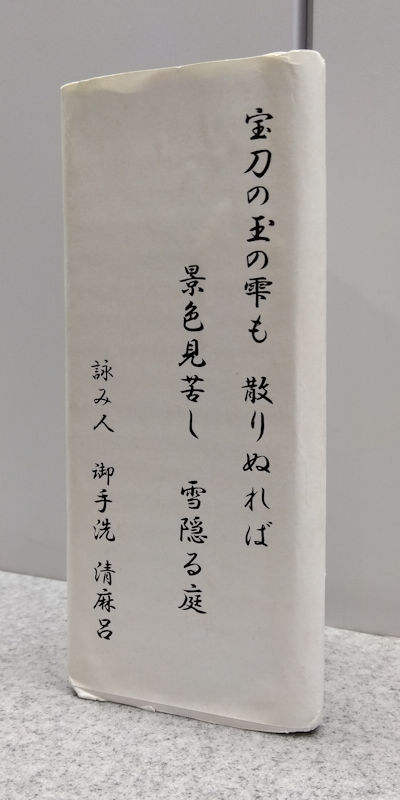 宝刀の玉の雫も　散りぬれば
景色見苦し　雪隠る庭
詠み人　御手洗 清麻呂